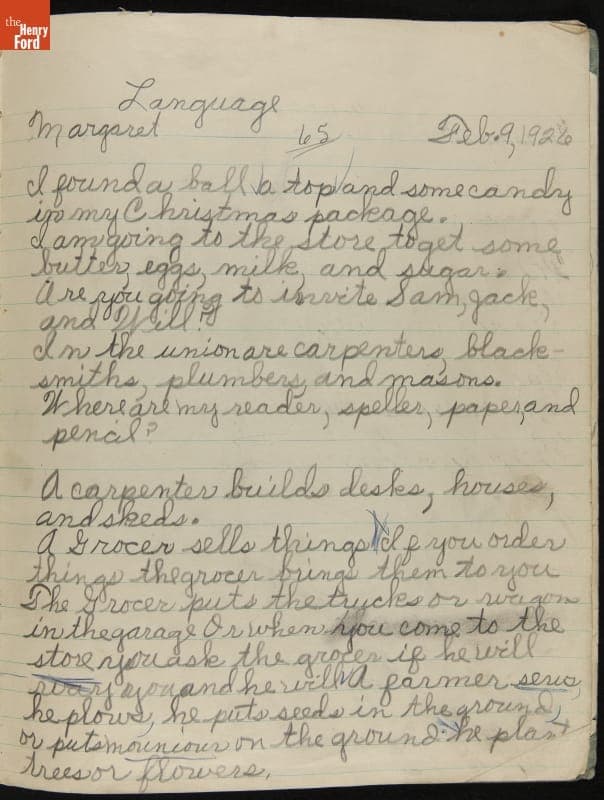 the
Henry
Ford
Language
Margaret 65 Feb. 9, 1926
I found a ball, a top, and some candy
in my Christmas package.
I am going to the store to get some
butter, eggs, milk, and sugar.
Are you going to invite Sam, Jack,
and Will?
In the union are carpenters, black-
smiths, plumbers, and masons.
Where are my reader, speller, paper, and
pencil?
A carpenter builds desks, houses,
and skeds.
A Grocer sells things If you order
things the grocer brings them to you
The Grocer puts the trucks or wagon
in the garage Or when you come to the
store you ask the grocer if he will
you and he will A farmer sews,
he plows, he puts seeds in the ground,
or puts on the ground. he plant
trees or flowers.